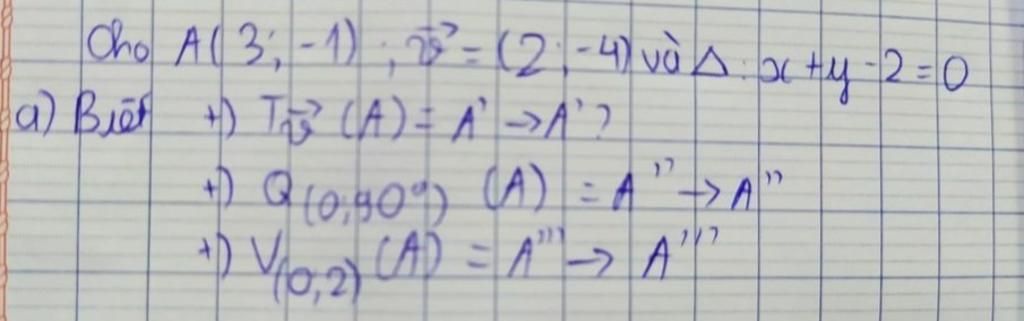 Cho A(3; -1); v⃗ = (2; -4) và Δ: x+y-2=0
a) Biết +) Tv⃗ (A) = A' → A'?
+) Q(O;90°) (A) = A'' → A''
+) V(O,2) (A) = A''' → A'''?